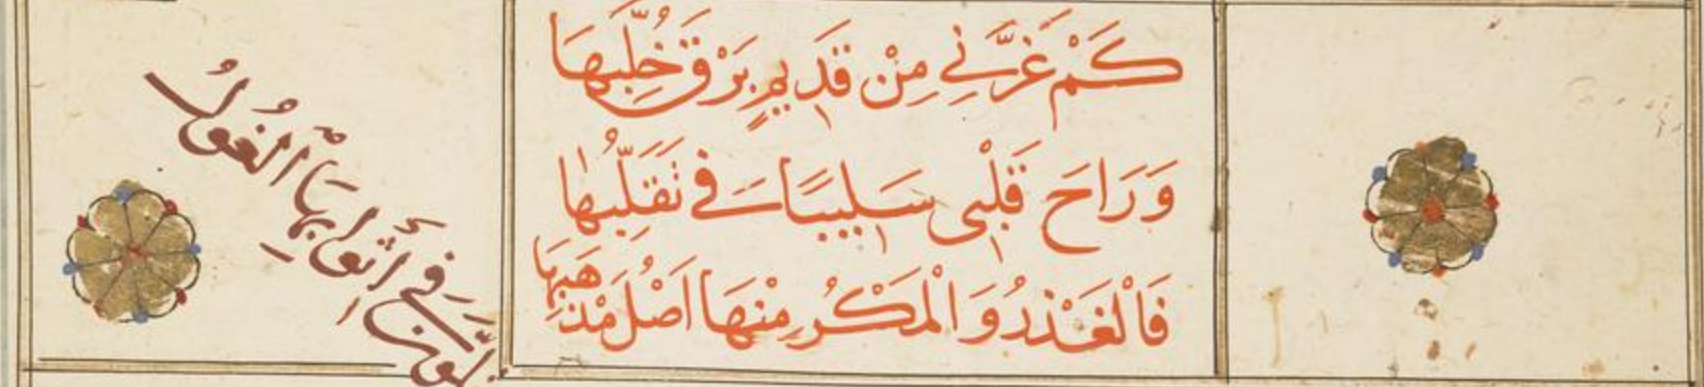 كَمْ غَرَّنِي مِنْ قَدِيمٍ بَرْقُ خُلَّبِهَا
وَرَاحَ قَلْبِي سَلِيبًا فِي تَقَلُّبِهَا
فَالْغَدْرُ وَالْمَكْرُ مِنْهَا اَصْلُ مَذْهَبِهَا
فِي أَثْوَابِهَا الْغُولُ